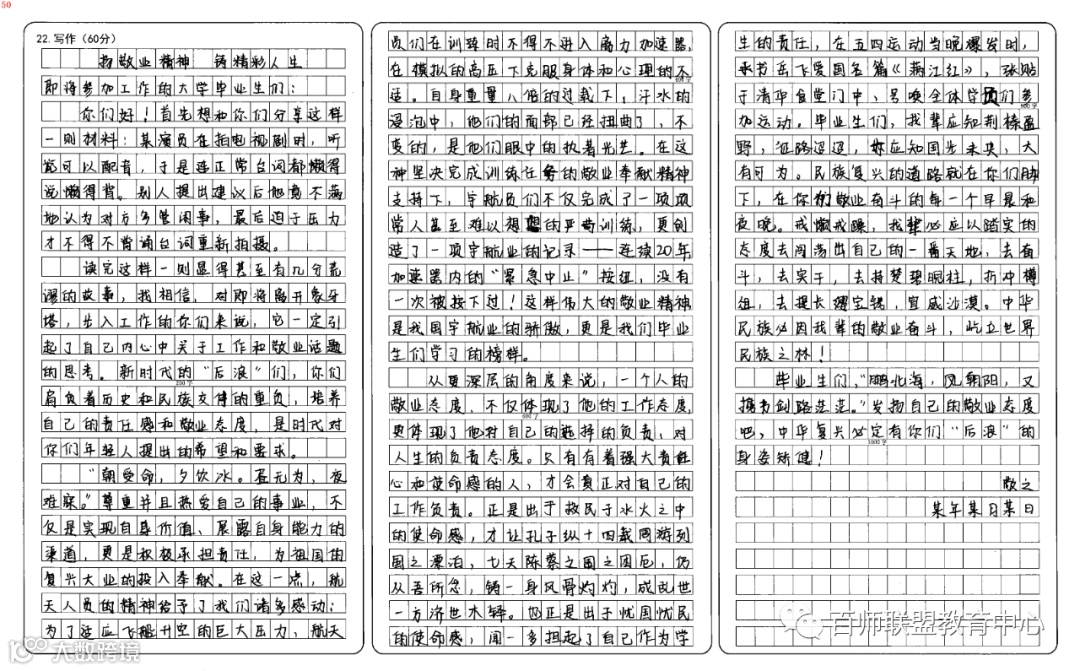 50
22. 写作（60分）
扬敬业精神 铸精彩人生
即将参加工作的大学毕业生们：
你们好！首先想和你们分享这样
一则材料：某演员在拍电视剧时，听
说可以配音，于是连正常台词都懒得
说懒得背。别人提出建议后他竟不满
地认为对方多管闲事，最后迫于压力
才不得不背诵台词重新拍摄。
读完这样一则显得甚至有几分荒
谬的故事，我相信，对即将离开象牙
塔，步入工作的你们来说，它一定引
起了自己内心中关于工作和敬业话题
的思考。新时代的“后浪”们，你们
200字
肩负着历史和民族交付的重负，培养
自己的责任感和敬业态度，是时代对
你们年轻人提出的希望和要求。
“朝受命，夕饮冰。昼无为，夜
难寐。”尊重并且热爱自己的事业，不
仅是实现自身价值、展露自身能力的
渠道，更是积极承担责任，为祖国的
复兴大业的投入奉献。在这一点，航
天人员的精神给予了我们诸多感动：
为了适应飞船升空的巨大压力，航天
员们在训练时不得不进入离力加速器，
在模拟的高压下克服身体和心理的不
适。自身重量八倍的过载下，汗水的
浸泡中，他们的面部已经扭曲了，不
变的，是他们眼中的执着光芒。在这
种坚决完成训练任务的敬业奉献精神
支持下，宇航员们不仅完成了一项项
常人甚至难以想想的严苛训练，更创
造了一项宇航业的记录——连续20年
加速器内的“紧急中止”按钮，没有
一次被按下过！这样伟大的敬业精神
是我国宇航业的骄傲，更是我们毕业
生们学习的榜样。
从更深层的角度来说，一个人的
敬业态度，不仅体现了他的工作态度，
600字
更体现了他对自己的选择的负责，对
人生的负责态度。只有有着强大责任
心和使命感的人，才会真正对自己的
工作负责。正是出于救民于水火之中
的使命感，才让孔子纵十四载周游列
国之漂泊，七天陈蔡之围之困厄，仍
从吾所念，铸一身风骨灼灼，成乱世
一方济世木铎。也正是出于忧国忧民
的使命感，闻一多担起了自己作为学
生的责任，在五四运动当晚爆发时，
承书岳飞爱国名篇《满江红》，张贴
于清华食堂门中，号唤全体学员们参
加运动。毕业生们，我辈应知荆榛盈
野，征路迢迢，亦应知国步未央，大
有可为。民族复兴的道路就在你们脚
下，在你们敬业奋斗的每一个早晨和
夜晚。戒懒戒躁，我辈必应以踏实的
态度去闯荡出自己的一番天地，去奋
斗，去实干，去持楚碧眠柱，折冲樽
俎，去提长缨宝锷，宣威沙漠。中华
民族必因我辈的敬业奋斗，屹立世界
民族之林！
毕业生们，“鹏北海，凤朝阳，又
携书剑路茫茫。”发扬自己的敬业态度
吧，中华复兴必定有你们“后浪”的
1000字
身姿矫健！
敬之
某年某月某日
百师联盟教育中心
大数跨境